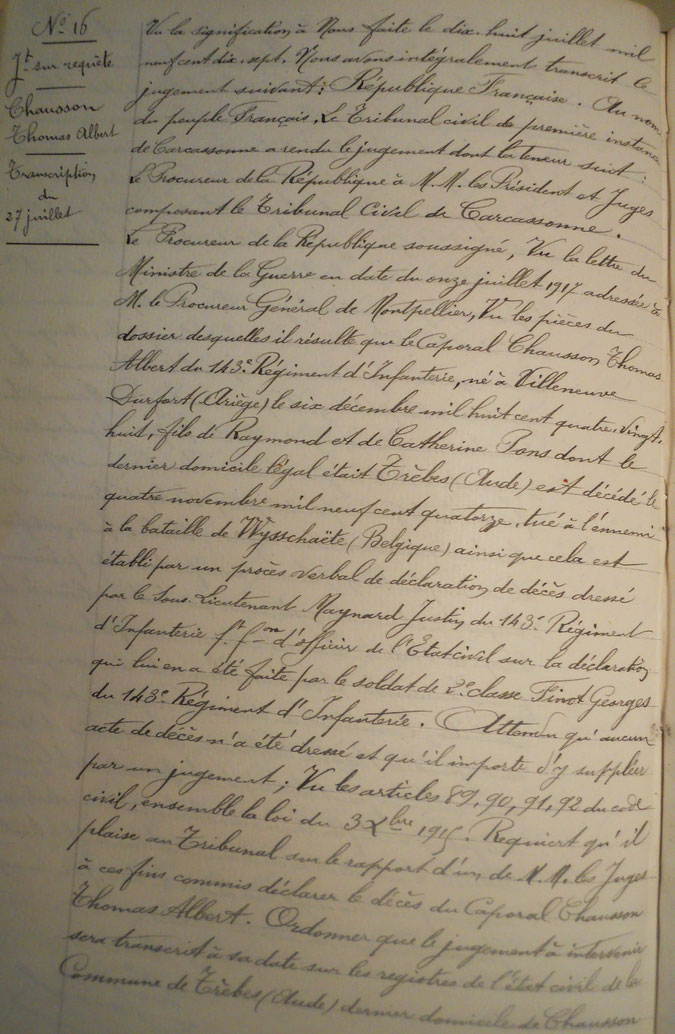 N° 16
Jt sur requête
Chausson
Thomas Albert
Transcription
du
27 juillet
Vu la signification à Nous faite le dix-huit juillet mil
neuf cent dix-sept, Nous avons intégralement transcrit le
jugement suivant : République Française. Au nom
du peuple Français, Le Tribunal civil de première instance
de Carcassonne a rendu le jugement dont la teneur suit :
Le Procureur de la République à M.M. les Président et Juges
composant le Tribunal Civil de Carcassonne.
Le Procureur de la République soussigné, Vu la lettre du
Ministre de la Guerre en date du onze juillet 1917 adressée à
M. le Procureur Général de Montpellier, Vu les pièces du
dossier desquelles il résulte que le Caporal Chausson Thomas
Albert du 143e Régiment d'Infanterie, né à Villeneuve
Durfort (Ariège) le six décembre mil huit cent quatre-vingt-
huit, fils de Raymond et de Catherine Pons dont le
dernier domicile légal était Trèbes (Aude) est décédé le
quatre novembre mil neuf cent quatorze, tué à l'ennemi
à la bataille de Wysschaëte (Belgique) ainsi que cela est
établi par un procès verbal de déclaration de décès dressé
par le Sous-Lieutenant Maynard Justin du 143e Régiment
d'Infanterie ft fon d'officier de l'Etat civil sur la déclaration
qui lui en a été faite par le soldat de 2e classe Finot Georges
du 143e Régiment d'Infanterie. Attendu qu'aucun
acte de décès n'a été dressé et qu'il importe d'y suppléer
par un jugement ; Vu les articles 89, 90, 91, 92 du code
civil, ensemble la loi du 3 Xbre 1915. Requiert qu'il
plaise au Tribunal sur le rapport d'un de M.M. les Juges
à ces fins commis déclarer le décès du Caporal Chausson
Thomas Albert. Ordonner que le jugement à intervenir
sera transcrit à sa date sur les registres de l'état civil de la
Commune de Trèbes (Aude) dernier domicile de Chausson